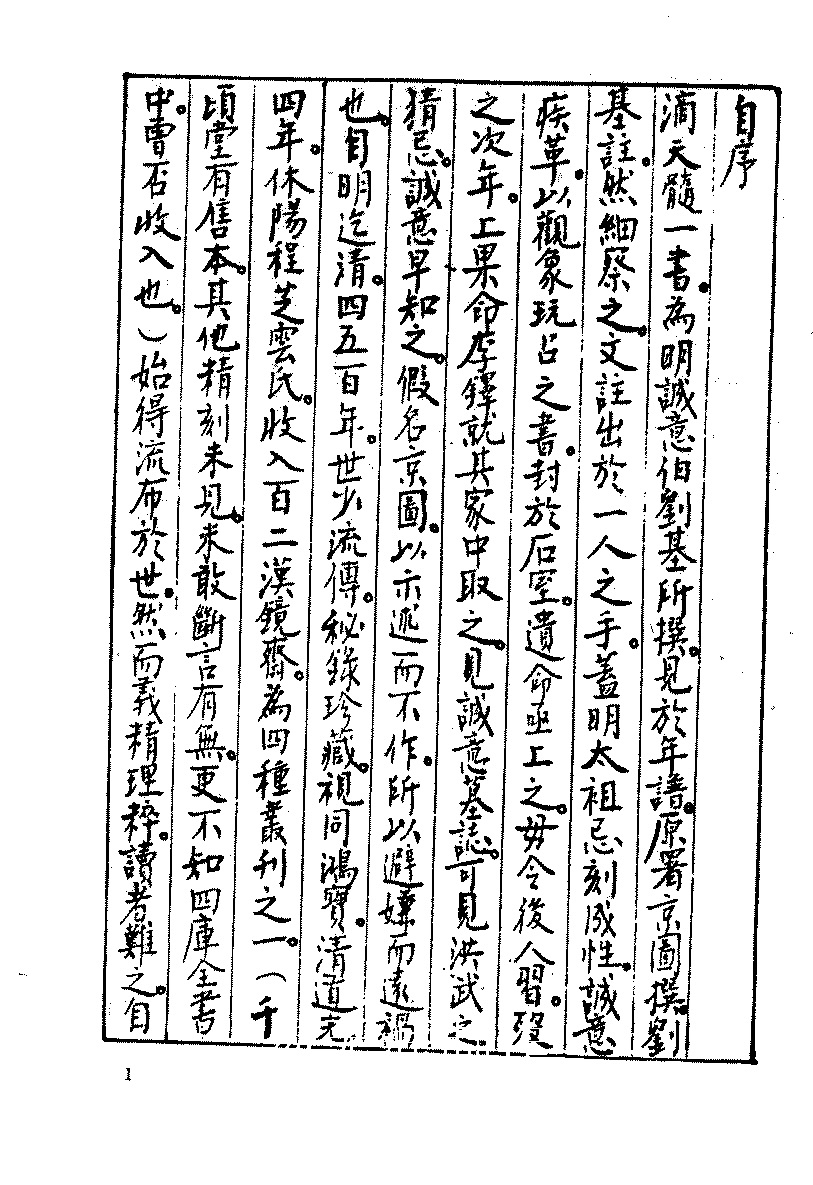 自序
滴天髓一書。為明誠意伯劉基所撰。見於年譜。原署京圖撰。劉
基註。然細察之。文註出於一人之手。蓋明太祖忌刻成性。誠意
疾革。以觀象玩占之書。封於石室。遺命亟上之。毋令後人習。歿
之次年。上果命李鐸就其家中取之。見誠意墓誌。可見洪武之
猜忌。誠意早知之。假名京圖。以示述而不作。所以避嫌而遠禍
也。自明迄清。四五百年。世少流傳。秘錄珍藏。視同鴻寶。清道光
四年。休陽程芝雲氏。收入百二漢鏡齋。為四種叢刊之一。（千
頃堂有售本。其他精刻未見。未敢斷言有無。更不知四庫全書
中。曹否收入也。）始得流布於世。然而義精理粹。讀者難之。自
1